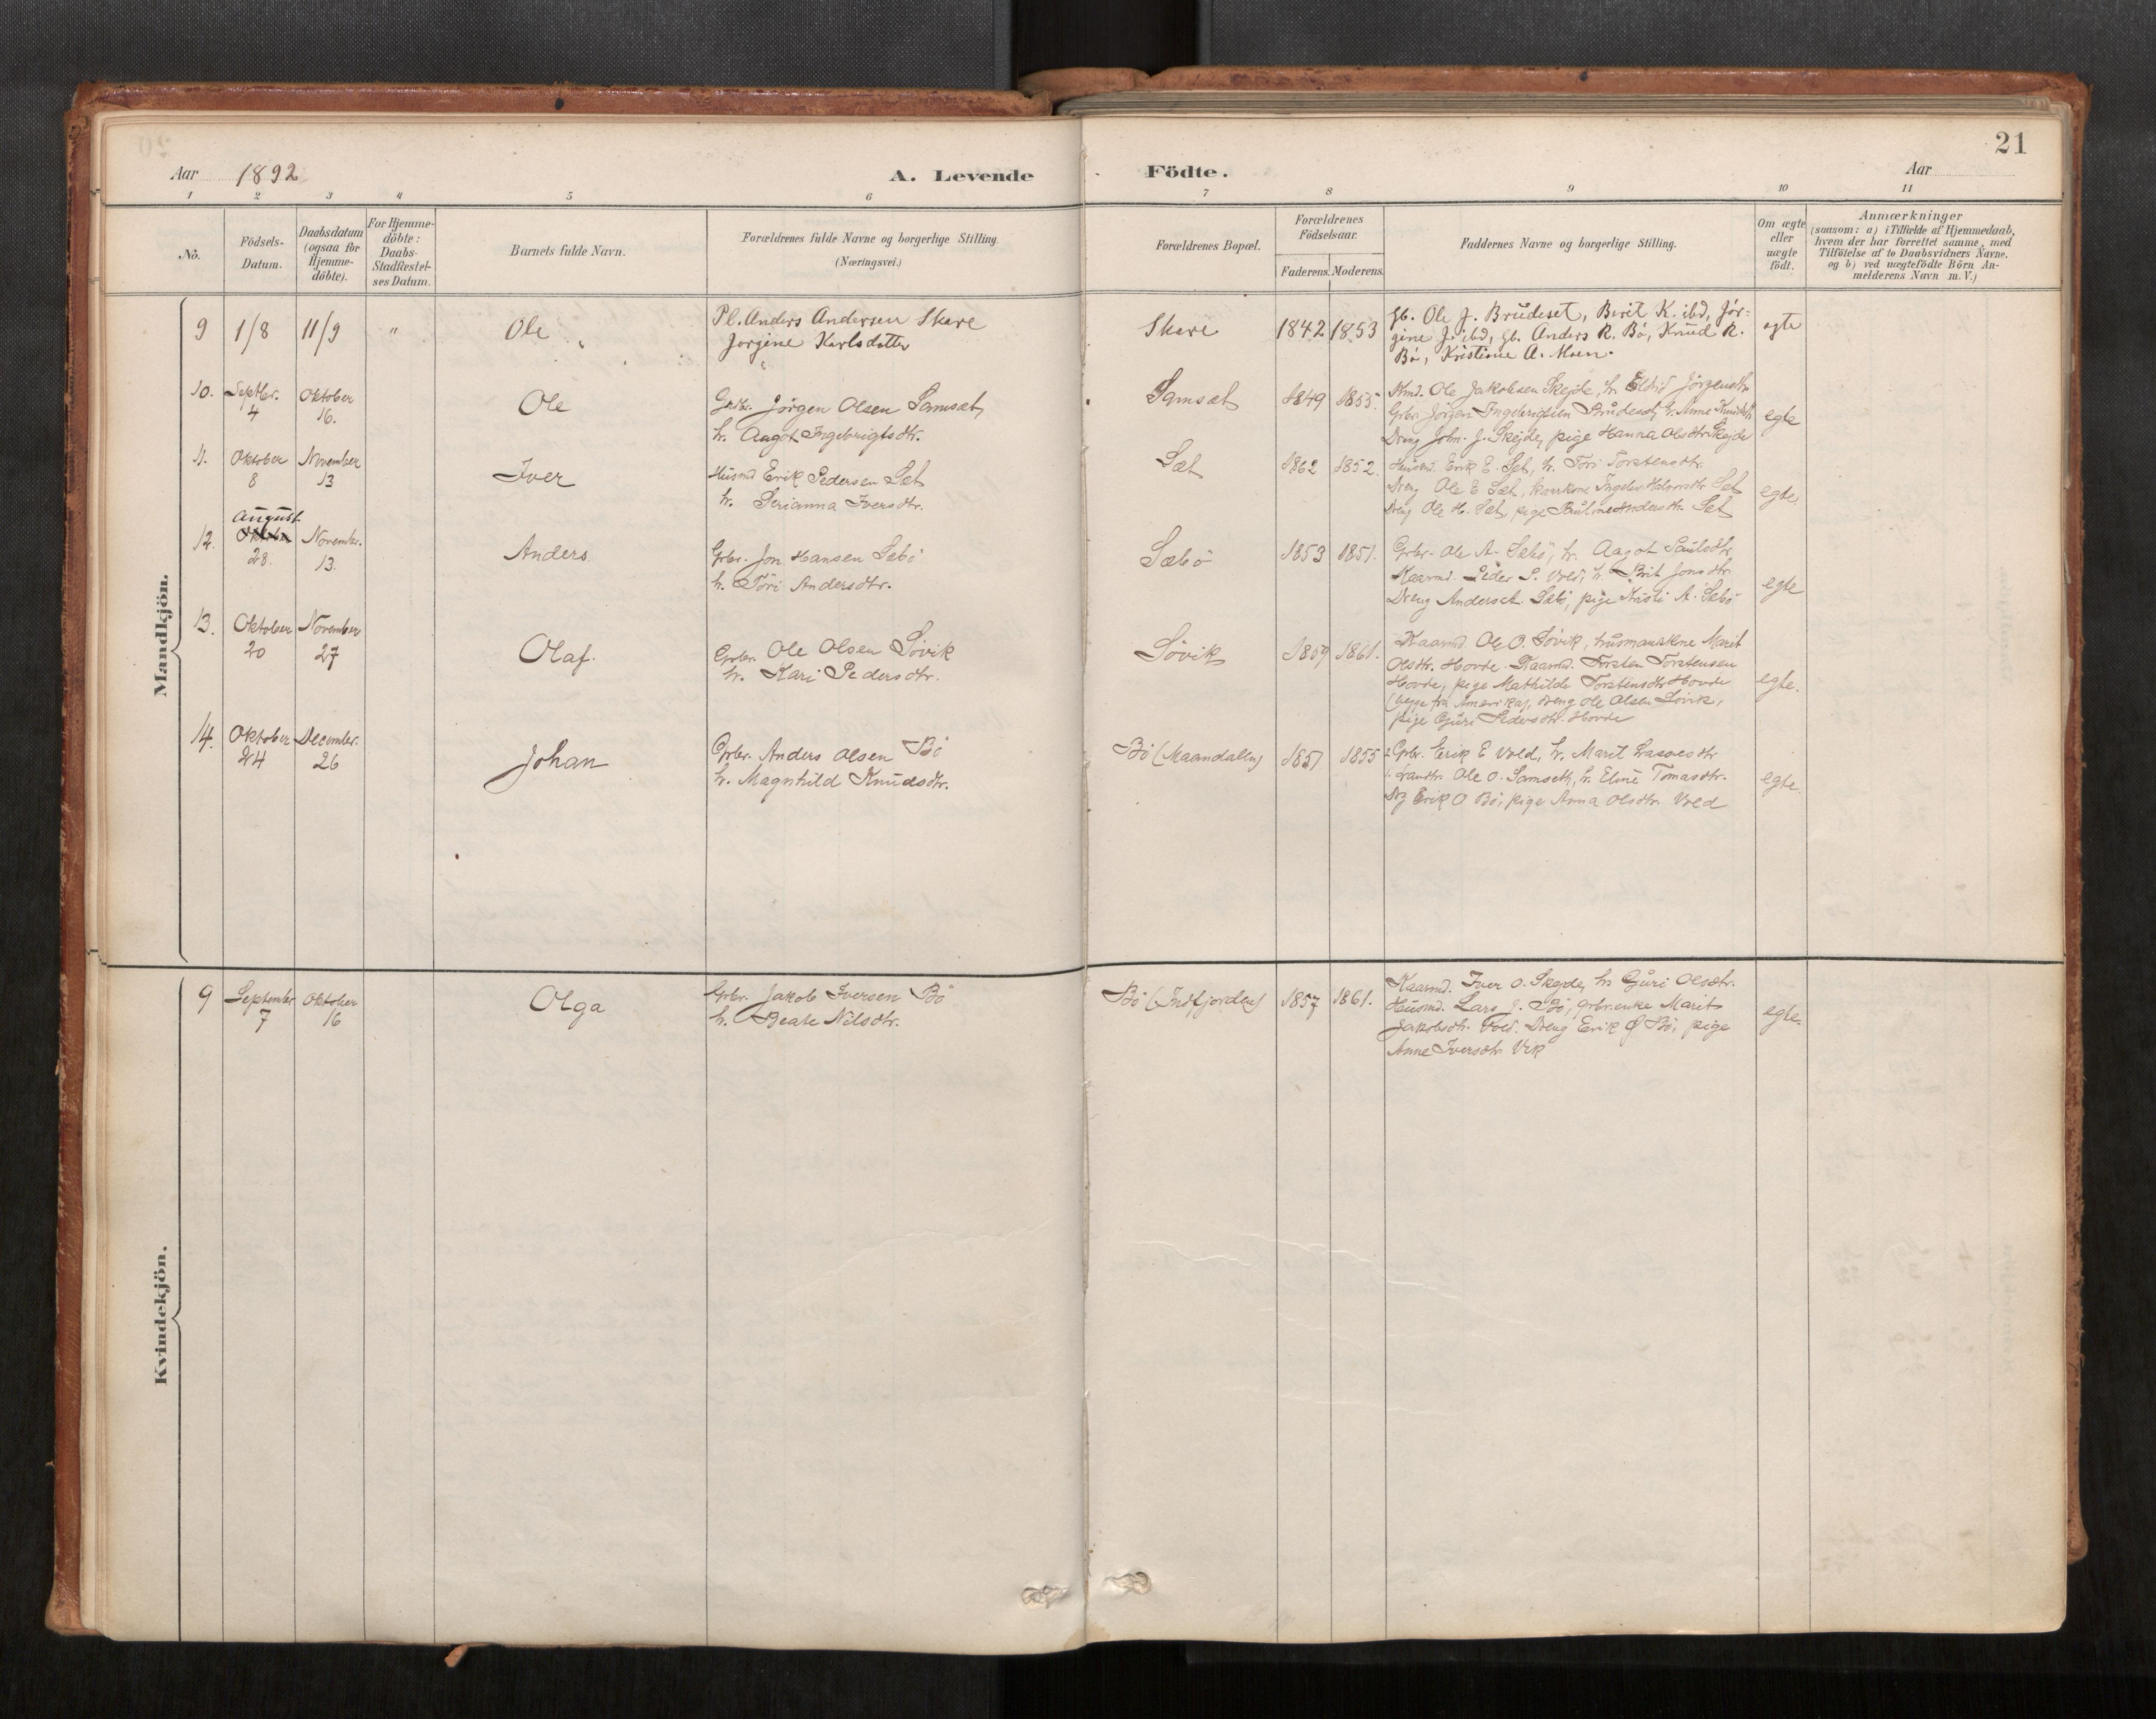 21
Aar 1892 A. Levende Födte. Aar
1 2 3 4 5 6 7 8 9 10 11
No.
Födsels-Datum.
Daabsdatum (ogsaa for Hjemme-döbte).
For Hjemme-döbte: Daabs-Stadfæstel-ses Datum.
Barnets fulde Navn.
Forældrenes fulde Navne og borgerlige Stilling.
(Næringsvei.)
Forældrenes Bopæl.
Forældrenes Födselsaar.
Faderens. Moderens.
Faddernes Navne og borgerlige Stilling.
Om ægte eller uægte födt.
Anmærkninger
(saasom: a) i Tilfælde af Hjemmedaab,
hvem der har forrettet samme, med
Tilföielse af to Daabsvidners Navne,
og b) ved uægtefödte Börn An-
melderens Navn m. V.)
Mandkjön.
9 1/8 11/9 " Ole
Pl. Anders Andersen Skare
Jorgine Karlsdatter
Skare 1842 1853
Gb. Ole J. Brudeset, Berit K. ibd, Jør-
gine J. ibd, Gb. Anders R. Bö, Knud R.
Bö, Kristine A. Moen.
egte
10. Septbr. 4 Oktober 16. Ole
Grbr. Jörgen Olsen Samset,
h. Aagot Ingebrigtsdtr.
Samset 1849 1855.
Kmd. Ole Jakobsen Skejde, h. Eldrid Jörgensdtr
Grbr. Jörgen Ingebrigtsen Brudeset, h. Anne Knudsdtr
Dreng John. J. Skejde, pige Hanna Olsdtr. Skejde
egte
11. Oktober 8 November 13 Iver
Husmd Erik Pedersen Set
h. Serianna Iversdtr.
Sæt 1862 1852.
Husmd. Erik E. Set, h. Tori Torstensdtr.
Dreng Ole E Sæt, Halvorsdtr Set
Dreng Ole H. Sæt, pige Andersdtr. Set
egte.
12. August Oktober 28. November. 13. Anders.
Grbr. Jon Hansen Sebö
h. Töri Andersdtr.
Sæbö 1853 1851.
Grbr. Ole A. Sæbö, h. Aagot Paulsdtr
Kaarmd. Peder P. Vold, h. Brit Jonsdtr.
Dreng Anders A. Sæbö, pige A. Sæbö
egte
13. Oktober 20 November 27 Olaf.
Grbr. Ole Olsen Sövik
h. Kari Pedersdtr.
Sövik 1859 1861.
Kaarmd. Ole O. Sövik, husmandskne Marit
Olsdtr. Hovde. Kaarmd. Torsten Torstensen
Hovde, pige Mathilde Torstensdtr Hovde
(begge fra Amerika), dreng Ole Olsen Sövik,
pige Guri Pedersdtr. Hovde
egte.
14. Oktober 24 December. 26 Johan
Grbr. Anders Olsen Bö
h. Magnhild Knudsdtr.
Bö (Maandalen) 1851 1855
Grbr. Erik E Vold, h. Marit Lassesdtr
Ole O. Samseth, h. Eline Tomasdtr.
Drg Erik O Bö, pige Anna Olsdtr. Vold
egte.
Kvindekjön.
9 September 7 Oktober 16 Olga
Grbr. Jakob Iversen Bö
h. Beate Nilsdtr.
Bö (Indfjorden) 1857 1861.
Kaarmd. Iver O. Skejde, h. Guri Olsdtr.
Husmd. Lars J. Bö, grbr. enke Marit
Jakobsdtr. Vold. Dreng Erik O Bö, pige
Anne Iversdtr Vik
egte.